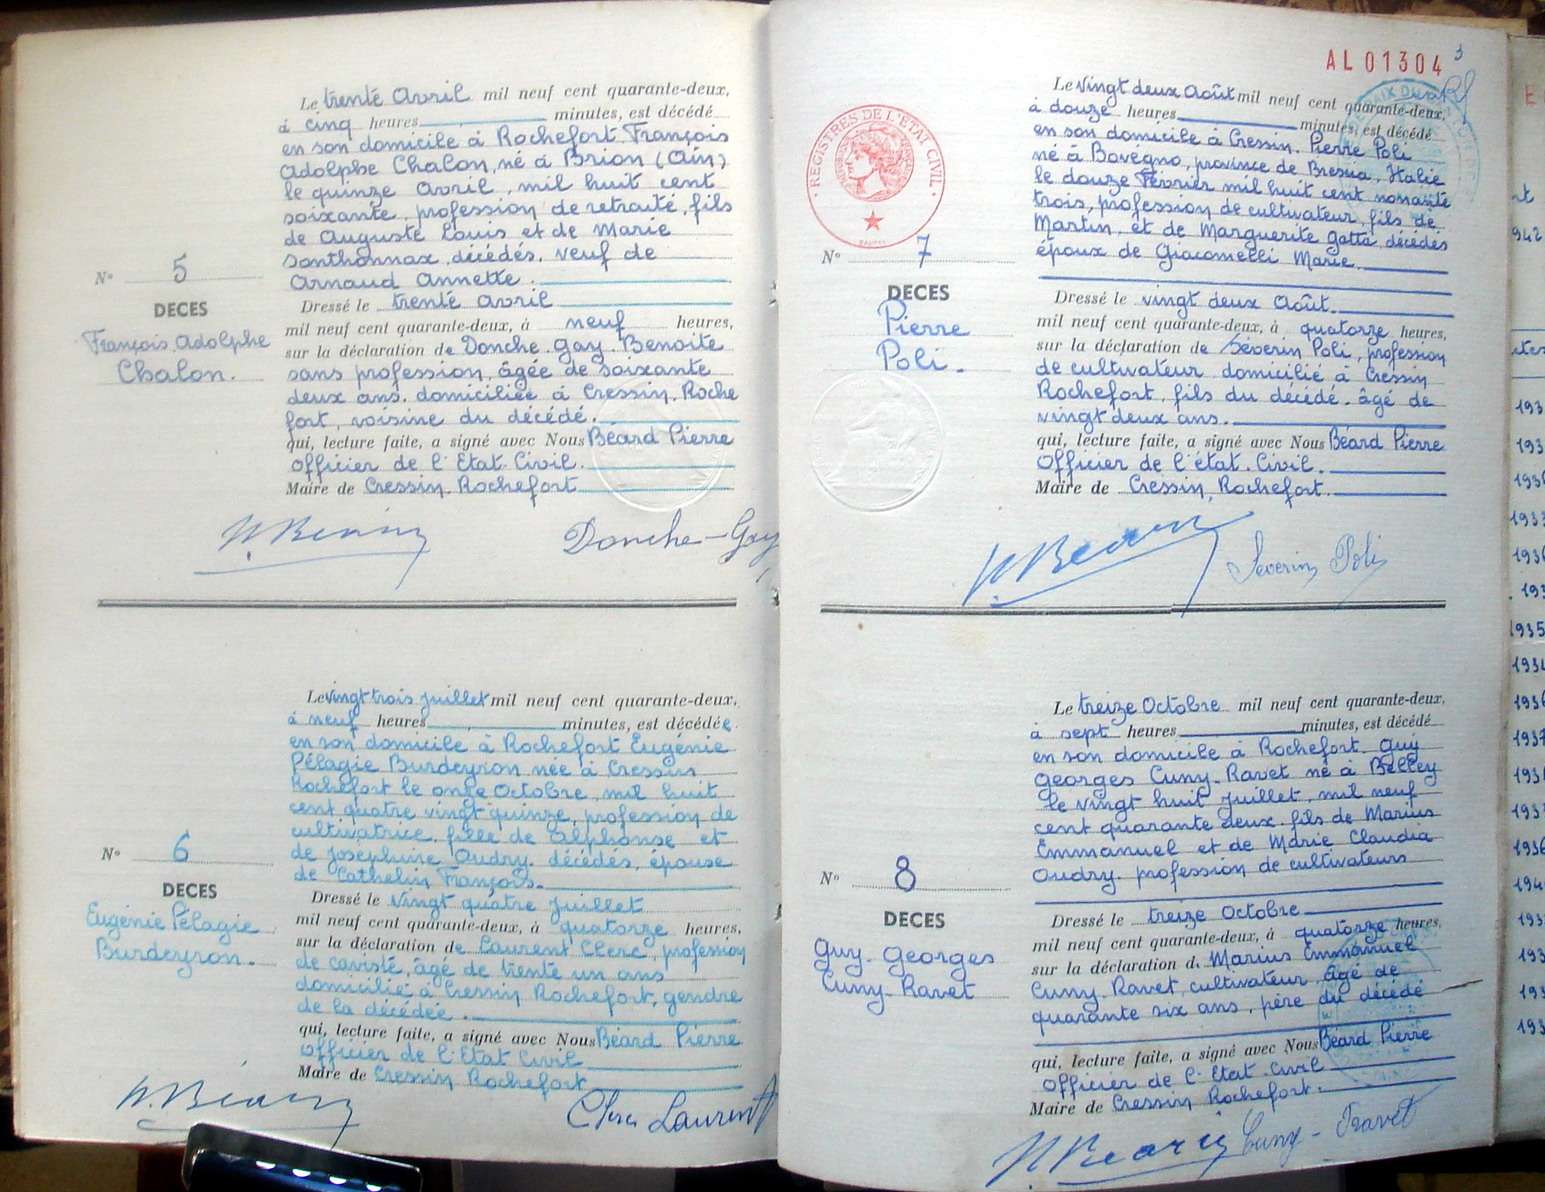 Le trente Avril mil neuf cent quarante-deux,
à cinq heures minutes, est décédé
en son domicile à Rochefort François
Adolphe Chalon, né à Brion (Ain)
le quinze Avril, mil huit cent
soixante, profession de retraité, fils
de Auguste Louis et de Marie
Santhonnax, décédés, veuf de
Arnaud Annette.
N° 5
DECES
François Adolphe
Chalon.
Dressé le trente Avril
mil neuf cent quarante-deux, à neuf heures,
sur la déclaration de Donche. Gay. Benoîte
sans profession, âgée de soixante
deux ans. domiciliée à Cressin. Roche
fort, voisine du décédé.
qui, lecture faite, a signé avec Nous Béard Pierre
Officier de l'Etat. Civil.
Maire de Cressin. Rochefort
P. Béard Donche-Gay
Le vingt trois juillet mil neuf cent quarante-deux,
à neuf heures minutes, est décédée.
en son domicile à Rochefort Eugénie
Pélagie Burdeyron née à Cressin
Rochefort le onze Octobre, mil huit
cent quatre vingt quinze, profession de
cultivatrice, fille de Alphonse et
de Joséphine Audry. décédés, épouse
de Cathelin François.
N° 6
DECES
Eugénie Pélagie
Burdeyron.
Dressé le vingt quatre juillet
mil neuf cent quarante-deux, à quatorze heures,
sur la déclaration de Laurent Clerc, profession
de caviste, âgé de trente un ans
domicilié à Cressin Rochefort, gendre
de la décédée.
qui, lecture faite, a signé avec Nous Béard Pierre
Officier de l'Etat Civil
Maire de Cressin Rochefort
P. Béard Clerc Laurent
AL 01304
3
REGISTRES DE L'ETAT CIVIL
Le vingt deux Août mil neuf cent quarante-deux,
à douze heures minutes, est décédé
en son domicile à Cressin. Pierre Poli
né à Bovégno, province de Brescia, Italie
le douze Février mil huit cent nonante
trois, profession de cultivateur, fils de
Martin, et de Marguerite Gatta, décédés
époux de Giacomelli Marie.
N° 7
DECES
Pierre
Poli.
Dressé le vingt deux Août.
mil neuf cent quarante-deux, à quatorze heures,
sur la déclaration de Séverin Poli, profession
de cultivateur domicilié à Cressin
Rochefort, fils du décédé. âgé de
vingt deux ans.
qui, lecture faite, a signé avec Nous Béard Pierre
Officier de l'état. Civil.
Maire de Cressin, Rochefort.
P. Béard Séverin Poli
Le treize Octobre mil neuf cent quarante-deux,
à sept heures minutes, est décédé
en son domicile à Rochefort Guy
Georges Cuny-Ravet né à Belley
le vingt huit juillet, mil neuf
cent quarante deux. fils de Marius
Emmanuel et de Marie Claudia
Audry. profession de cultivateurs
N° 8
DECES
Guy-Georges
Cuny-Ravet
Dressé le treize Octobre
mil neuf cent quarante-deux, à quatorze heures,
sur la déclaration de Marius Emmanuel
Cuny-Ravet, cultivateur, âgé de
quarante six ans, père du décédé
qui, lecture faite, a signé avec Nous Béard Pierre
Officier de l'Etat Civil
Maire de Cressin Rochefort.
P. Béard Cuny-Ravet